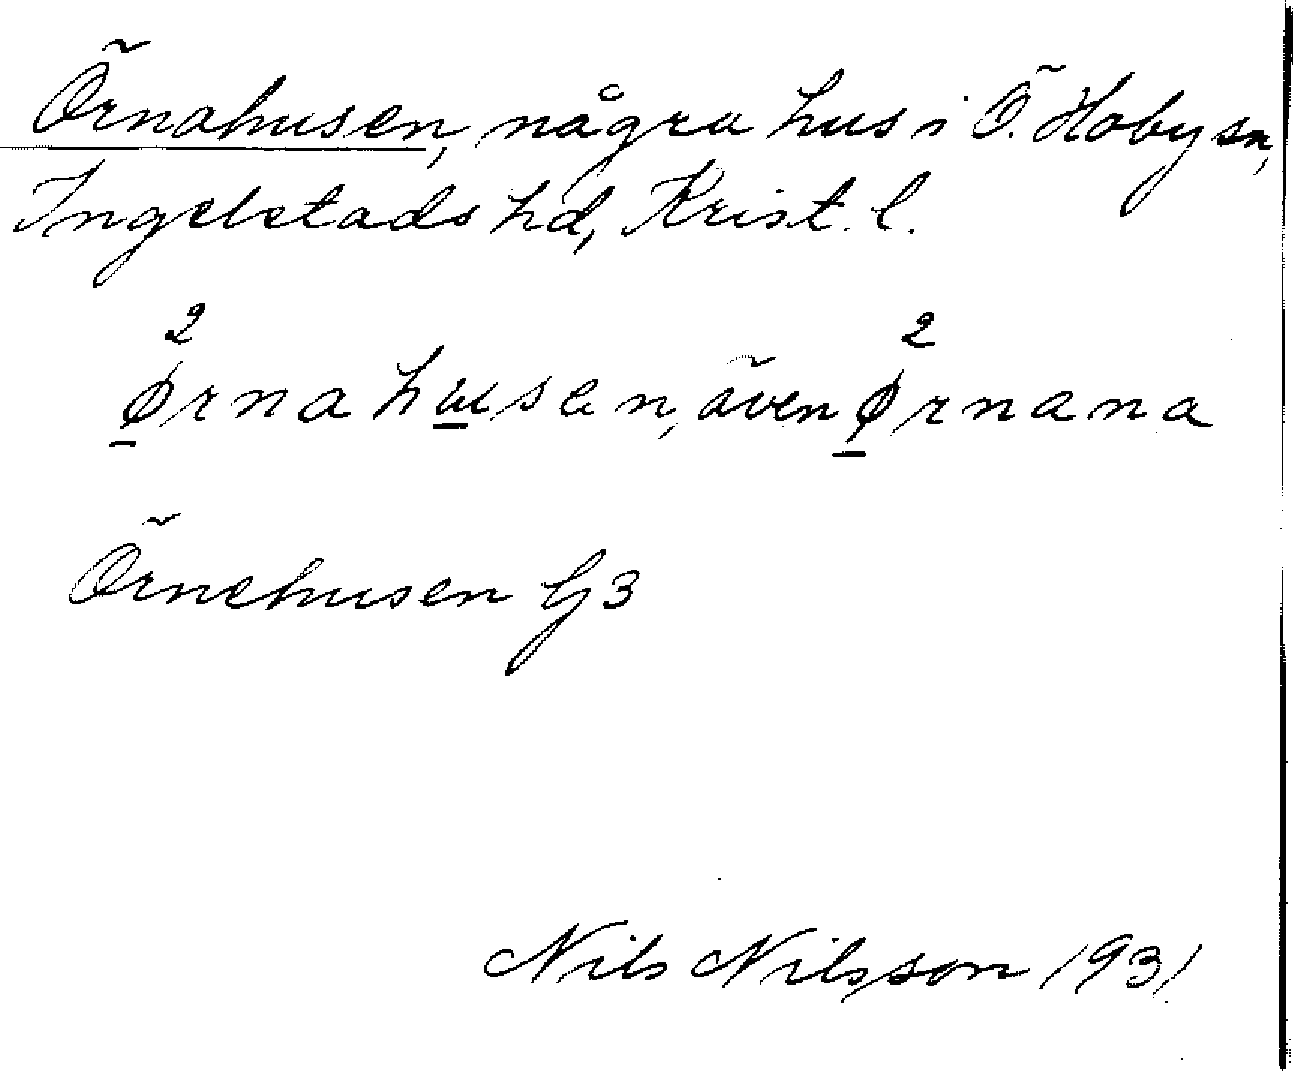 Örnahusen, några hus i Ö. Hoby sn,
Ingelstads hd, Krist. l.
2 2
ørnahusen, även ørnana
Örnehusen G3
Nils Nilsson 1931